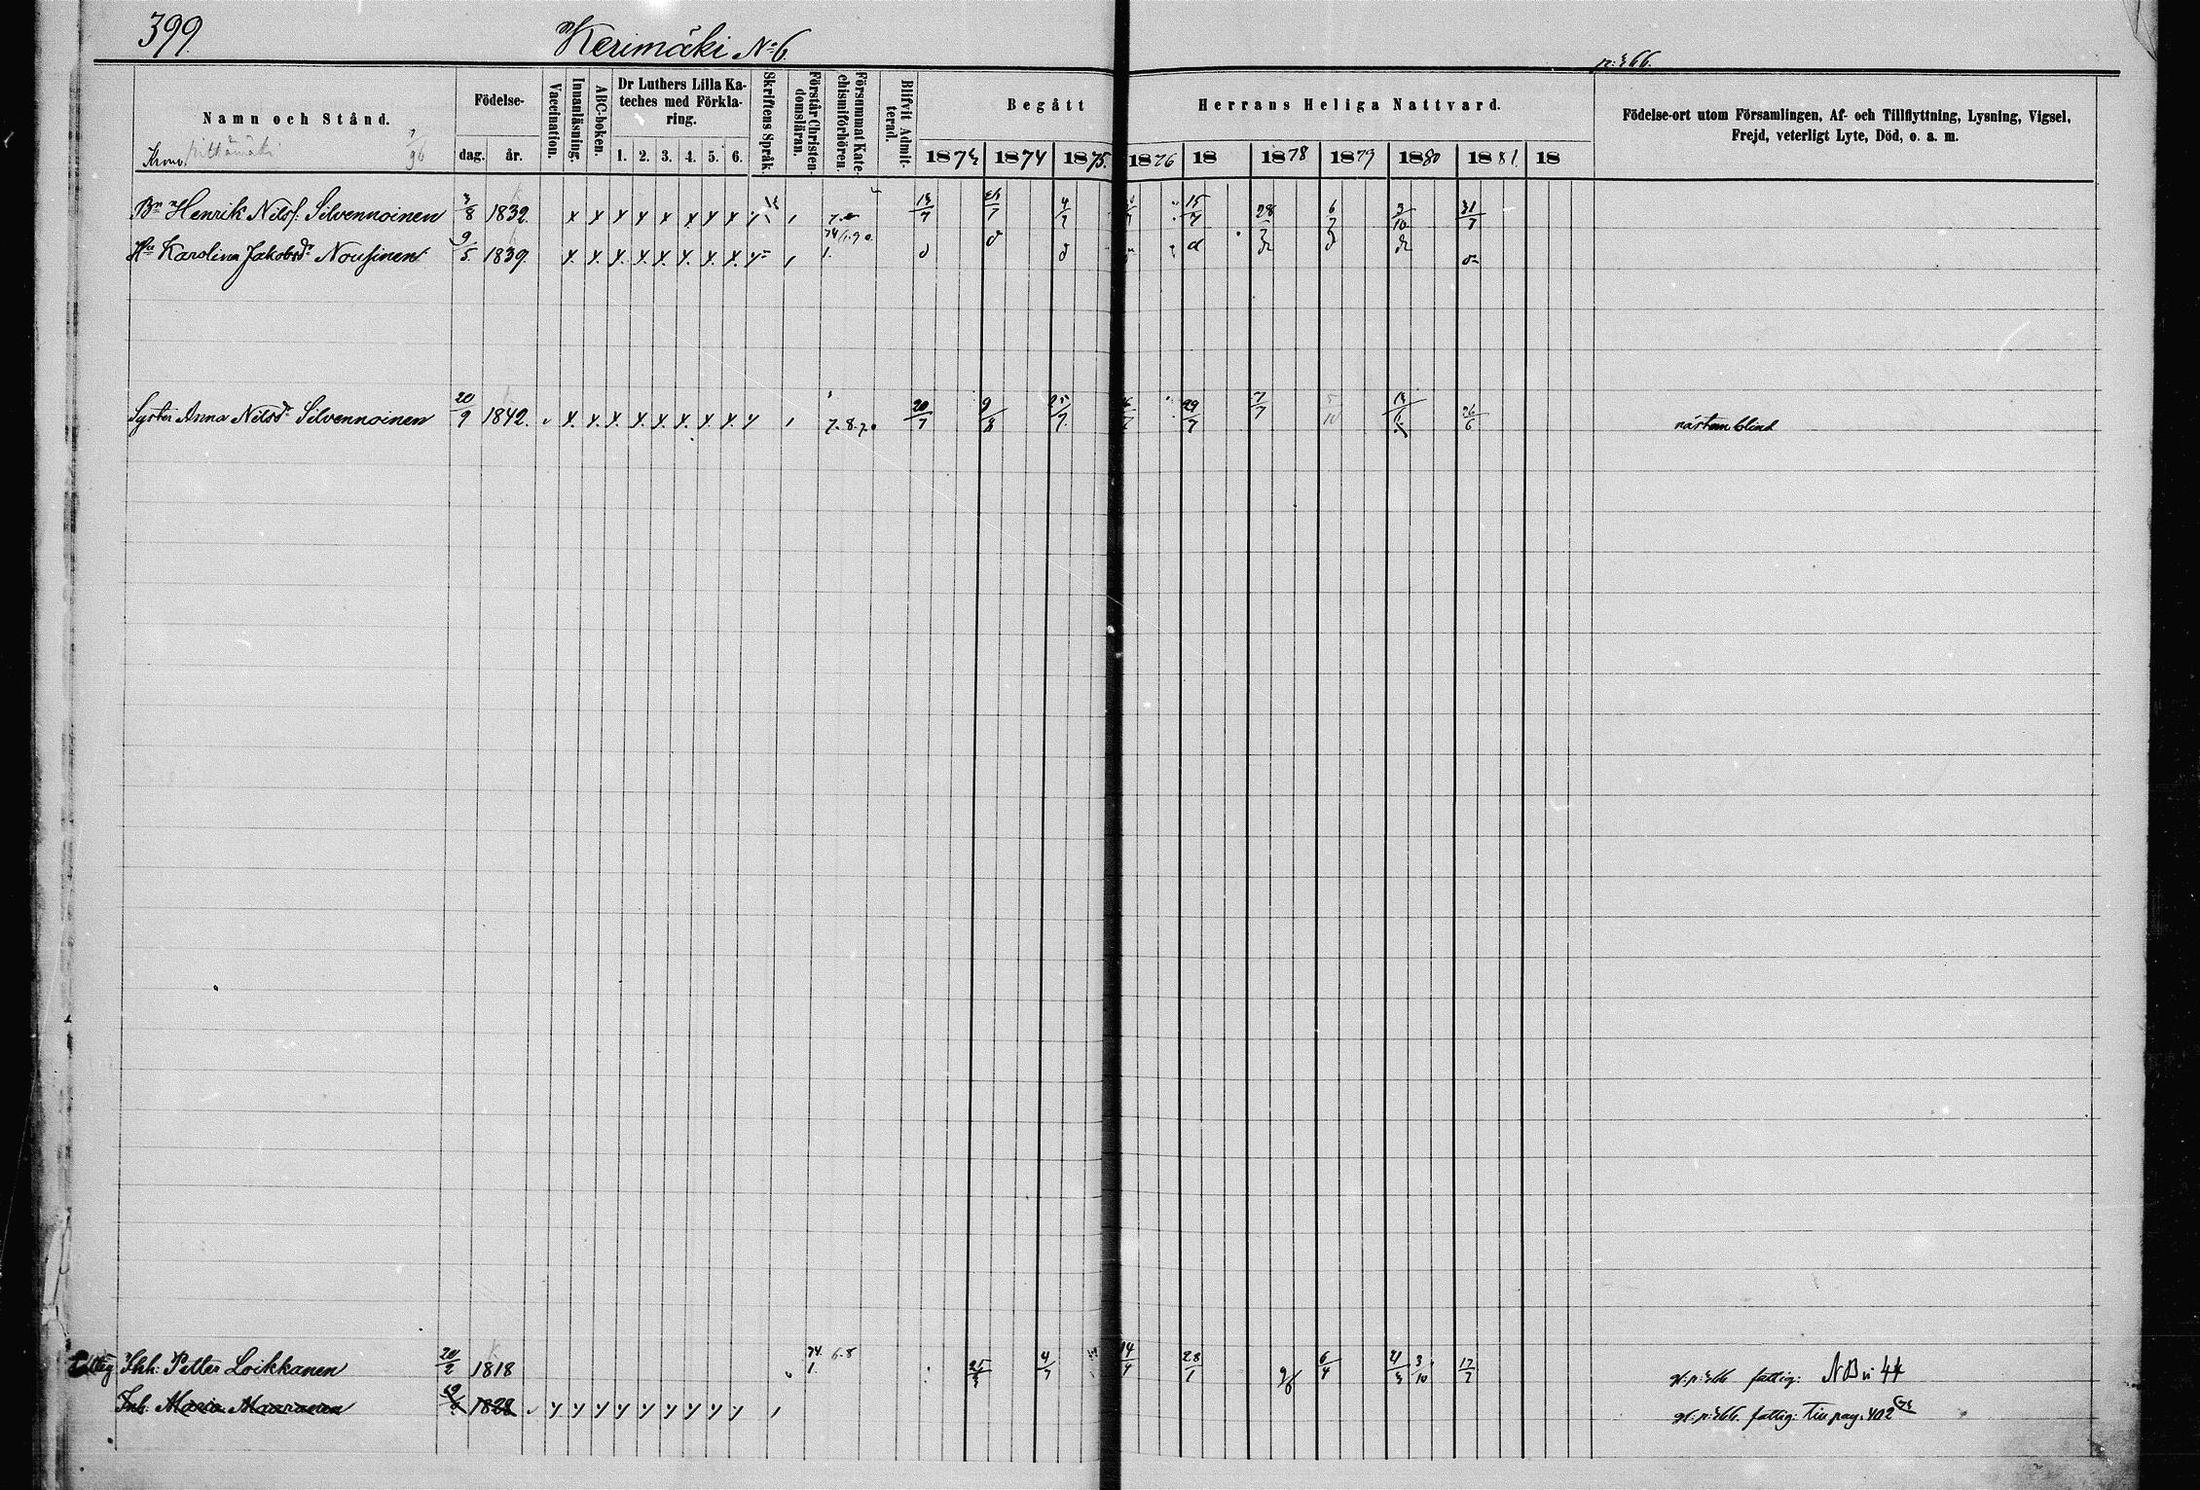 399.
Kerimäki No 6.
p: 366.
Namn och Stånd.
Födelse-
dag.
år.
Vaccination.
Innanläsning.
ABC-boken.
Dr Luthers Lilla Ka-
teches med Förkla-
ring.
1. 2. 3. 4. 5. 6.
Skriftens Språk.
Förstår Christen-
domsläran.
Försummat Kate-
chismiförhören.
Blifvit Admit-
terad.
Begått Herrans Heliga Nattvard.
1873 1874 1875. 1876 18 1878 1879 1880 1881 18
Födelse-ort utom Församlingen, Af- och Tillflyttning, Lysning, Vigsel,
Frejd, veterligt Lyte, Död, o. a. m.
Bn Henrik Nilsf: Silvennoinen 3/8 1832. 13/7 4/7 15/7 28/7 6/7 3/10 31/7
Hu Karolina Jakobsdr Nousinen 9/5. 1839.
Syster Anna Nilsdr Silvennoinen 20/9 1842. 7.8.70 20/7 9/8 25/7 29/7 7/7 26/6 nästan blind
Fattig Shh: Petter Loikkanen 20/2 1818 74. 6.8 25/3 4/7 14/4 28/1 6/4 21/3 3/10 17/7 gl. p: 366 fattig: NB i 44
Inh: Maria Maaranen 1828 gl. p: 366. fattig: Till pag. 402